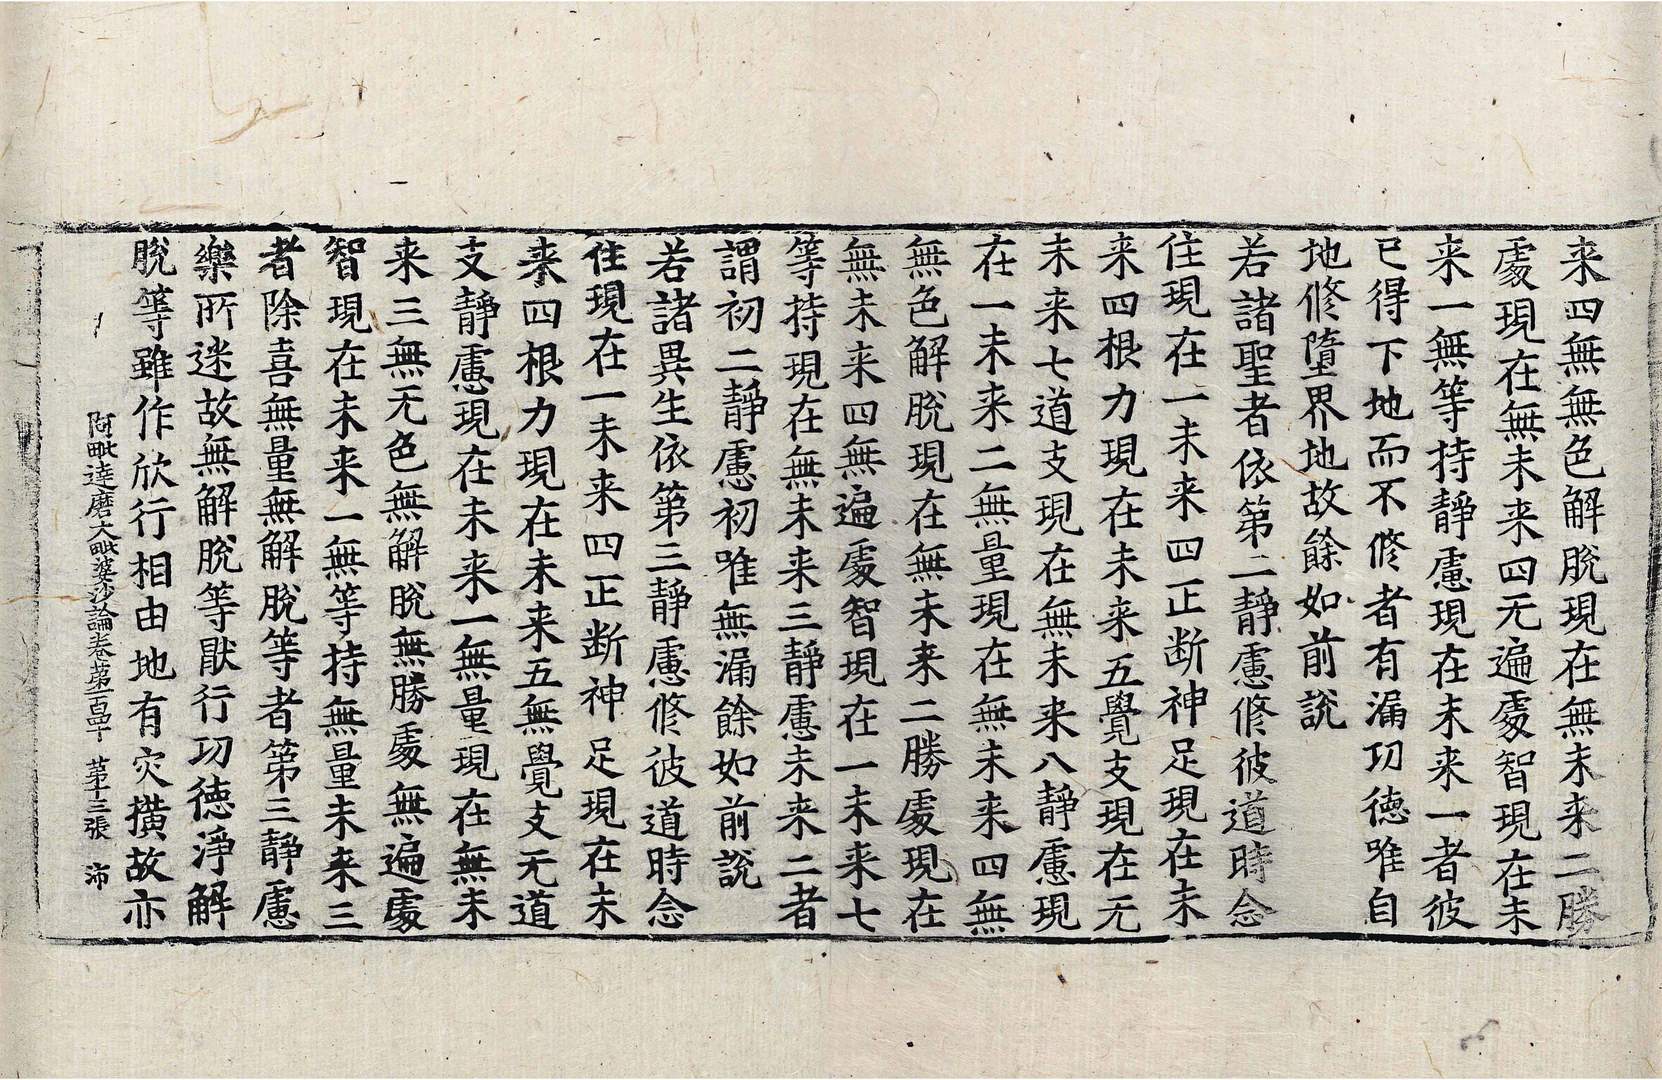 来四無無色解脫現在無未来二勝
處現在無未来四无遍處智現在未
来一無等持靜慮現在未来一者彼
已得下地而不修者有漏功德唯自
地修墮界地故餘如前說
若諸聖者依第二靜慮修彼道時念
住現在一未来四正断神足現在未
来四根力現在未来五覺支現在无
未来七道支現在無未来八靜慮現
在一未来二無量現在無未来四無
無色解脫現在無未来二勝處現在
無未来四無遍處智現在一未来七
等持現在無未来三靜慮未来二者
謂初二靜慮初唯無漏餘如前說
若諸異生依第三靜慮修彼道時念
住現在一未来四正断神足現在未
来四根力現在未来五無覺支无道
支靜慮現在未来一無量現在無未
来三無无色無解脫無勝處無遍處
智現在未来一無等持無量未来三
者除喜無量無解脫等者第三靜慮
樂所迷故無解脫等猒行功德淨解
脫等雖作欣行相由地有灾横故亦
阿毗達磨大毗婆沙論卷第一百四十 第十三張 沛